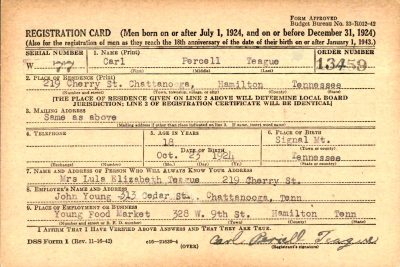 FORM APPROVED
Budget Bureau No. 33-R012-42
REGISTRATION CARD (Men born on or after July 1, 1924, and on or before December 31, 1924)
(Also for the registration of men as they reach the 18th anniversary of the date of their birth on or after January 1, 1943.)
SERIAL NUMBER 1. NAME (Print) ORDER NUMBER
W 77 Carl Percell Teague 13459
(First) (Middle) (Last)
2. PLACE OF RESIDENCE (Print)
219 Cherry St. Chattanooga, Hamilton Tennessee
(Number and street) (Town, township, village, or city) (County) (State)
[THE PLACE OF RESIDENCE GIVEN ON LINE 2 ABOVE WILL DETERMINE LOCAL BOARD
JURISDICTION; LINE 2 OF REGISTRATION CERTIFICATE WILL BE IDENTICAL]
3. MAILING ADDRESS
Same as above
[Mailing address if other than place indicated on line 2. If same, insert word same]
4. TELEPHONE 5. AGE IN YEARS 6. PLACE OF BIRTH
18 Signal Mt.
DATE OF BIRTH (Town or county)
Oct. 23 1924 Tennessee
(Exchange) (Number) (Mo.) (Day) (Yr.) (State or country)
7. NAME AND ADDRESS OF PERSON WHO WILL ALWAYS KNOW YOUR ADDRESS
Mrs Lula Elizabeth Teague 219 Cherry St.
8. EMPLOYER'S NAME AND ADDRESS
John Young 313 Cedar St., Chattanooga, Tenn
9. PLACE OF EMPLOYMENT OR BUSINESS
Young Food Market 328 W. 9th St. Hamilton Tenn
(Number and street or R. F. D. number) (Town) (County) (State)
I AFFIRM THAT I HAVE VERIFIED ABOVE ANSWERS AND THAT THEY ARE TRUE.
DSS Form 1 (Rev. 11-16-42) (OVER) Carl Percell Teague
(Registrant's signature)